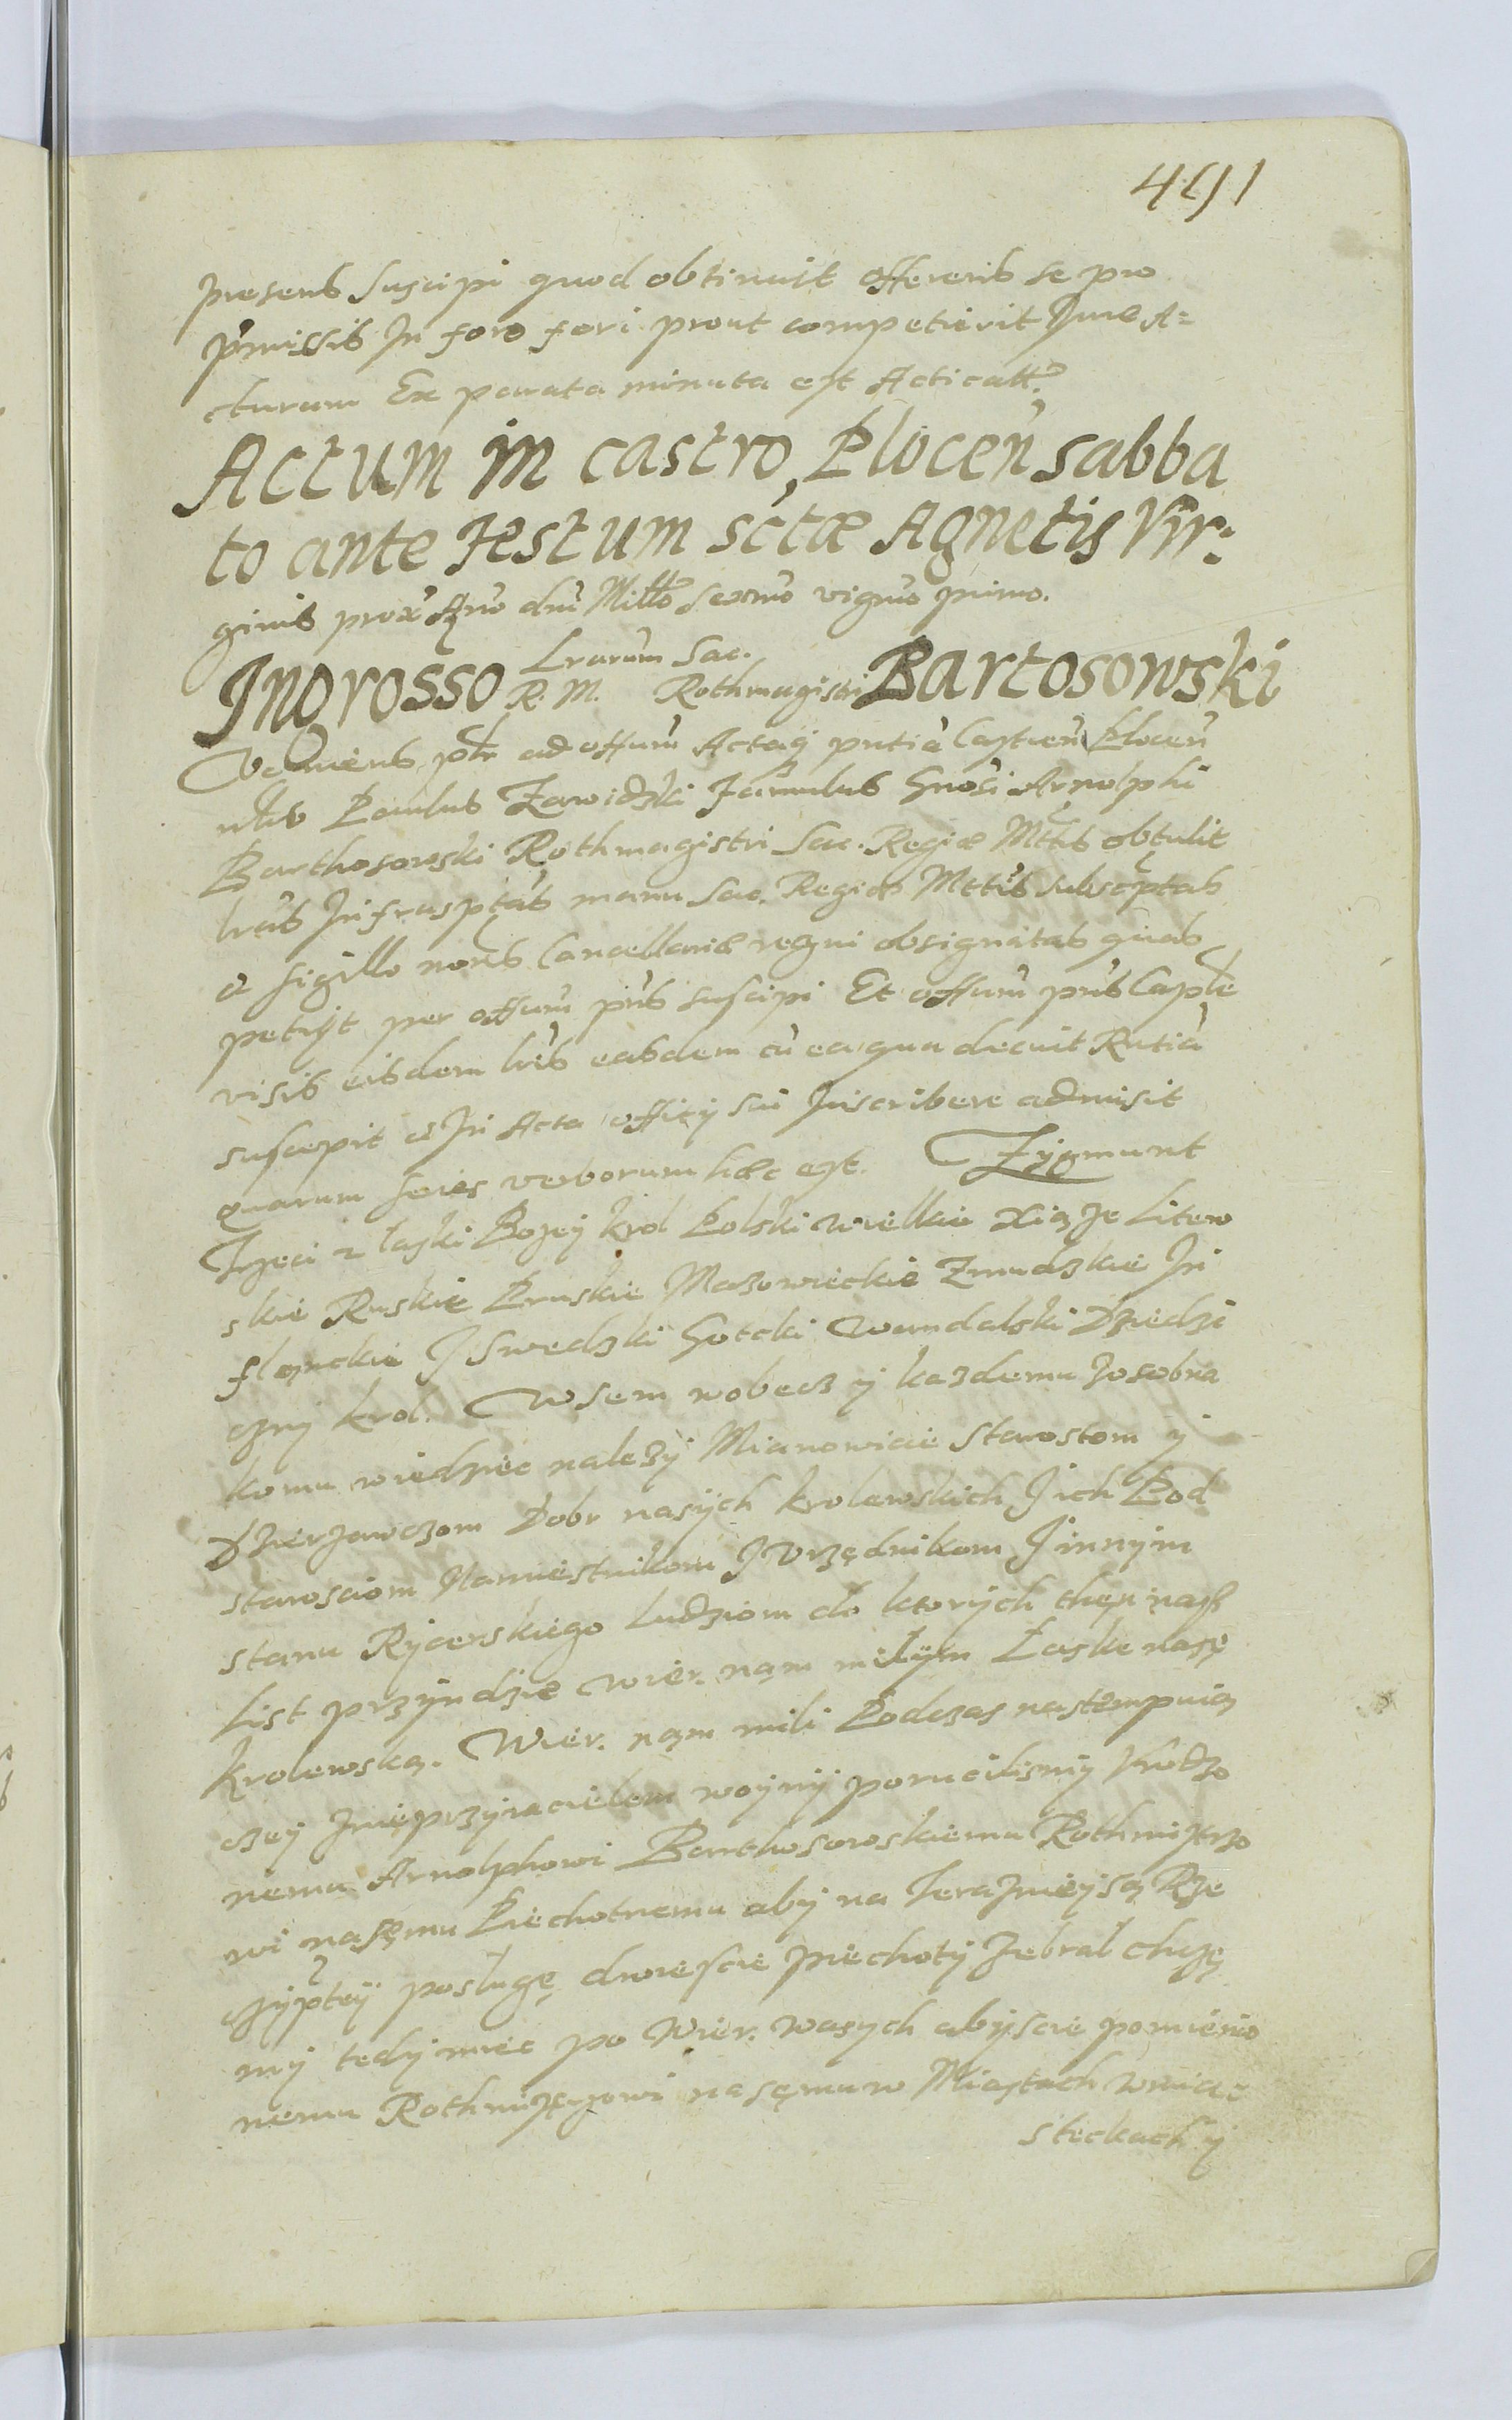 491
presens suscipi quod obtinuit offerens se pro
pmissis In foro fori prout competierit Jure A=
cturum Ex parata minuta est Acticatt.
Actum in castro Plocen sabba
to ante Festum sctæ Agnetis Vir:
ginis prox Ano dni Millo Sexmo vigmo primo.
Ingrosso Lrarum Sac. R. M. Rothmagistri Bartosowski
Veniens plr ad offum Actaq pntia Castren Plocen
nlis Paulus Zawidzki Famulus Gnosi Arnolphi
Barthosowski Rothmagistri Sac. Regiæ Mttis obtulit
lras Infrasptas manu Sac. Regiæ Mttis subscptas
et sigillo noris Cancellariæ regni obsignatas quas
petijt per offum pns suscipi Et offum pns Caple
visis eisdem lris easdem cu ea qua decuit Rntia
suscepit et In Acta officij sui Inscribere admisit
quarum series verborum hæc est. Zÿgmunt
Trzeci z łaski Bozeÿ krol Polski wielkie xiąze Litew
skie Ruskie Pruskie Mazowieckie Zmudzkie In
flanckie J Swedzki Gotcki wandalski Dziedzi
czny krol. Wsem wobecz ÿ kazdemu zosobna
komu wiedziec nalezÿ Mianowicie Starostom ÿ
Dzierzawczom Dobr nasÿch krolewskich J ich Pod
starosciom Namiestnikom J Vrzędnikom J innÿm
stanu Rÿcerskiego ludziom do ktorÿch then nasz
List przÿndzie wier. nąm miłÿm Łaske nasę
krolewską. Wier. nąm mili Podczas nastempuią
czeÿ znieprzÿiacielem woÿnÿ porucilismÿ Vrodzo
nemu Arnolphowi Barthosowskiemu Rothmistrzo
wi nasęmu Piechotnemu abÿ na Terazniejsą Rze
czÿptÿ posługę dwiescie piechotÿ zebrał chczę
mÿ tedÿ miec po Wier. wasÿch abÿscie pomienio
nemu Rothmistrzowi nasęmu w Miastach wmia
steckach ÿ